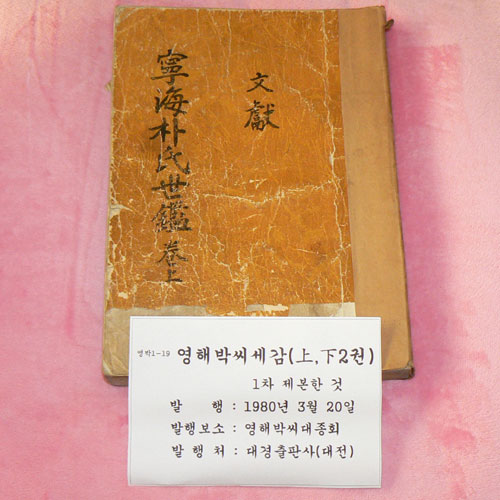 文獻
寧海朴氏世鑑 卷上
영박1-19 영해박씨세감(上,下2권)
1차 제본한 것
발 행 : 1980년 3월 20일
발행보소 : 영해박씨대종회
발 행 처 : 대경출판사(대전)